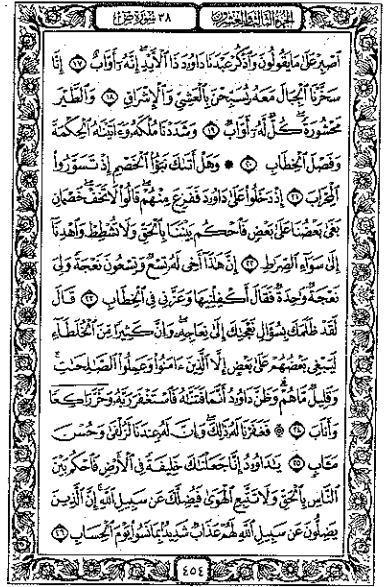 الجزء الثالث والعشرون
٣٨ سورة ص
ٱصۡبِرۡ عَلَىٰ مَا يَقُولُونَ وَٱذۡكُرۡ عَبۡدَنَا دَاوُۥدَ ذَا ٱلۡأَيۡدِۖ إِنَّهُۥٓ أَوَّابٌ ١٧ إِنَّا
سَخَّرۡنَا ٱلۡجِبَالَ مَعَهُۥ يُسَبِّحۡنَ بِٱلۡعَشِيِّ وَٱلۡإِشۡرَاقِ ١٨ وَٱلطَّيۡرَ
مَحۡشُورَةٗۖ كُلّٞ لَّهُۥٓ أَوَّابٞ ١٩ وَشَدَدۡنَا مُلۡكَهُۥ وَءَاتَيۡنَٰهُ ٱلۡحِكۡمَةَ
وَفَصۡلَ ٱلۡخِطَابِ ٢٠ ۞ وَهَلۡ أَتَىٰكَ نَبَؤُاْ ٱلۡخَصۡمِ إِذۡ تَسَوَّرُواْ
ٱلۡمِحۡرَابَ ٢١ إِذۡ دَخَلُواْ عَلَىٰ دَاوُۥدَ فَفَزِعَ مِنۡهُمۡۖ قَالُواْ لَا تَخَفۡۖ خَصۡمَانِ
بَغَىٰ بَعۡضُنَا عَلَىٰ بَعۡضٖ فَٱحۡكُم بَيۡنَنَا بِٱلۡحَقِّ وَلَا تُشۡطِطۡ وَٱهۡدِنَآ
إِلَىٰ سَوَآءِ ٱلصِّرَٰطِ ٢٢ إِنَّ هَٰذَآ أَخِي لَهُۥ تِسۡعٞ وَتِسۡعُونَ نَعۡجَةٗ وَلِيَ
نَعۡجَةٞ وَٰحِدَةٞ فَقَالَ أَكۡفِلۡنِيهَا وَعَزَّنِي فِي ٱلۡخِطَابِ ٢٣ قَالَ
لَقَدۡ ظَلَمَكَ بِسُؤَالِ نَعۡجَتِكَ إِلَىٰ نِعَاجِهِۦۖ وَإِنَّ كَثِيرٗا مِّنَ ٱلۡخُلَطَآءِ
لَيَبۡغِي بَعۡضُهُمۡ عَلَىٰ بَعۡضٍ إِلَّا ٱلَّذِينَ ءَامَنُواْ وَعَمِلُواْ ٱلصَّٰلِحَٰتِ
وَقَلِيلٞ مَّا هُمۡۗ وَظَنَّ دَاوُۥدُ أَنَّمَا فَتَنَّٰهُ فَٱسۡتَغۡفَرَ رَبَّهُۥ وَخَرَّۤ رَاكِعٗاۤ
وَأَنَابَ ۩ ٢٤ فَغَفَرۡنَا لَهُۥ ذَٰلِكَۖ وَإِنَّ لَهُۥ عِندَنَا لَزُلۡفَىٰ وَحُسۡنَ
مَـَٔابٖ ٢٥ يَٰدَاوُۥدُ إِنَّا جَعَلۡنَٰكَ خَلِيفَةٗ فِي ٱلۡأَرۡضِ فَٱحۡكُم بَيۡنَ
ٱلنَّاسِ بِٱلۡحَقِّ وَلَا تَتَّبِعِ ٱلۡهَوَىٰ فَيُضِلَّكَ عَن سَبِيلِ ٱللَّهِۚ إِنَّ ٱلَّذِينَ
يَضِلُّونَ عَن سَبِيلِ ٱللَّهِ لَهُمۡ عَذَابٞ شَدِيدُۢ بِمَا نَسُواْ يَوۡمَ ٱلۡحِسَابِ ٢٦
٤٥٤